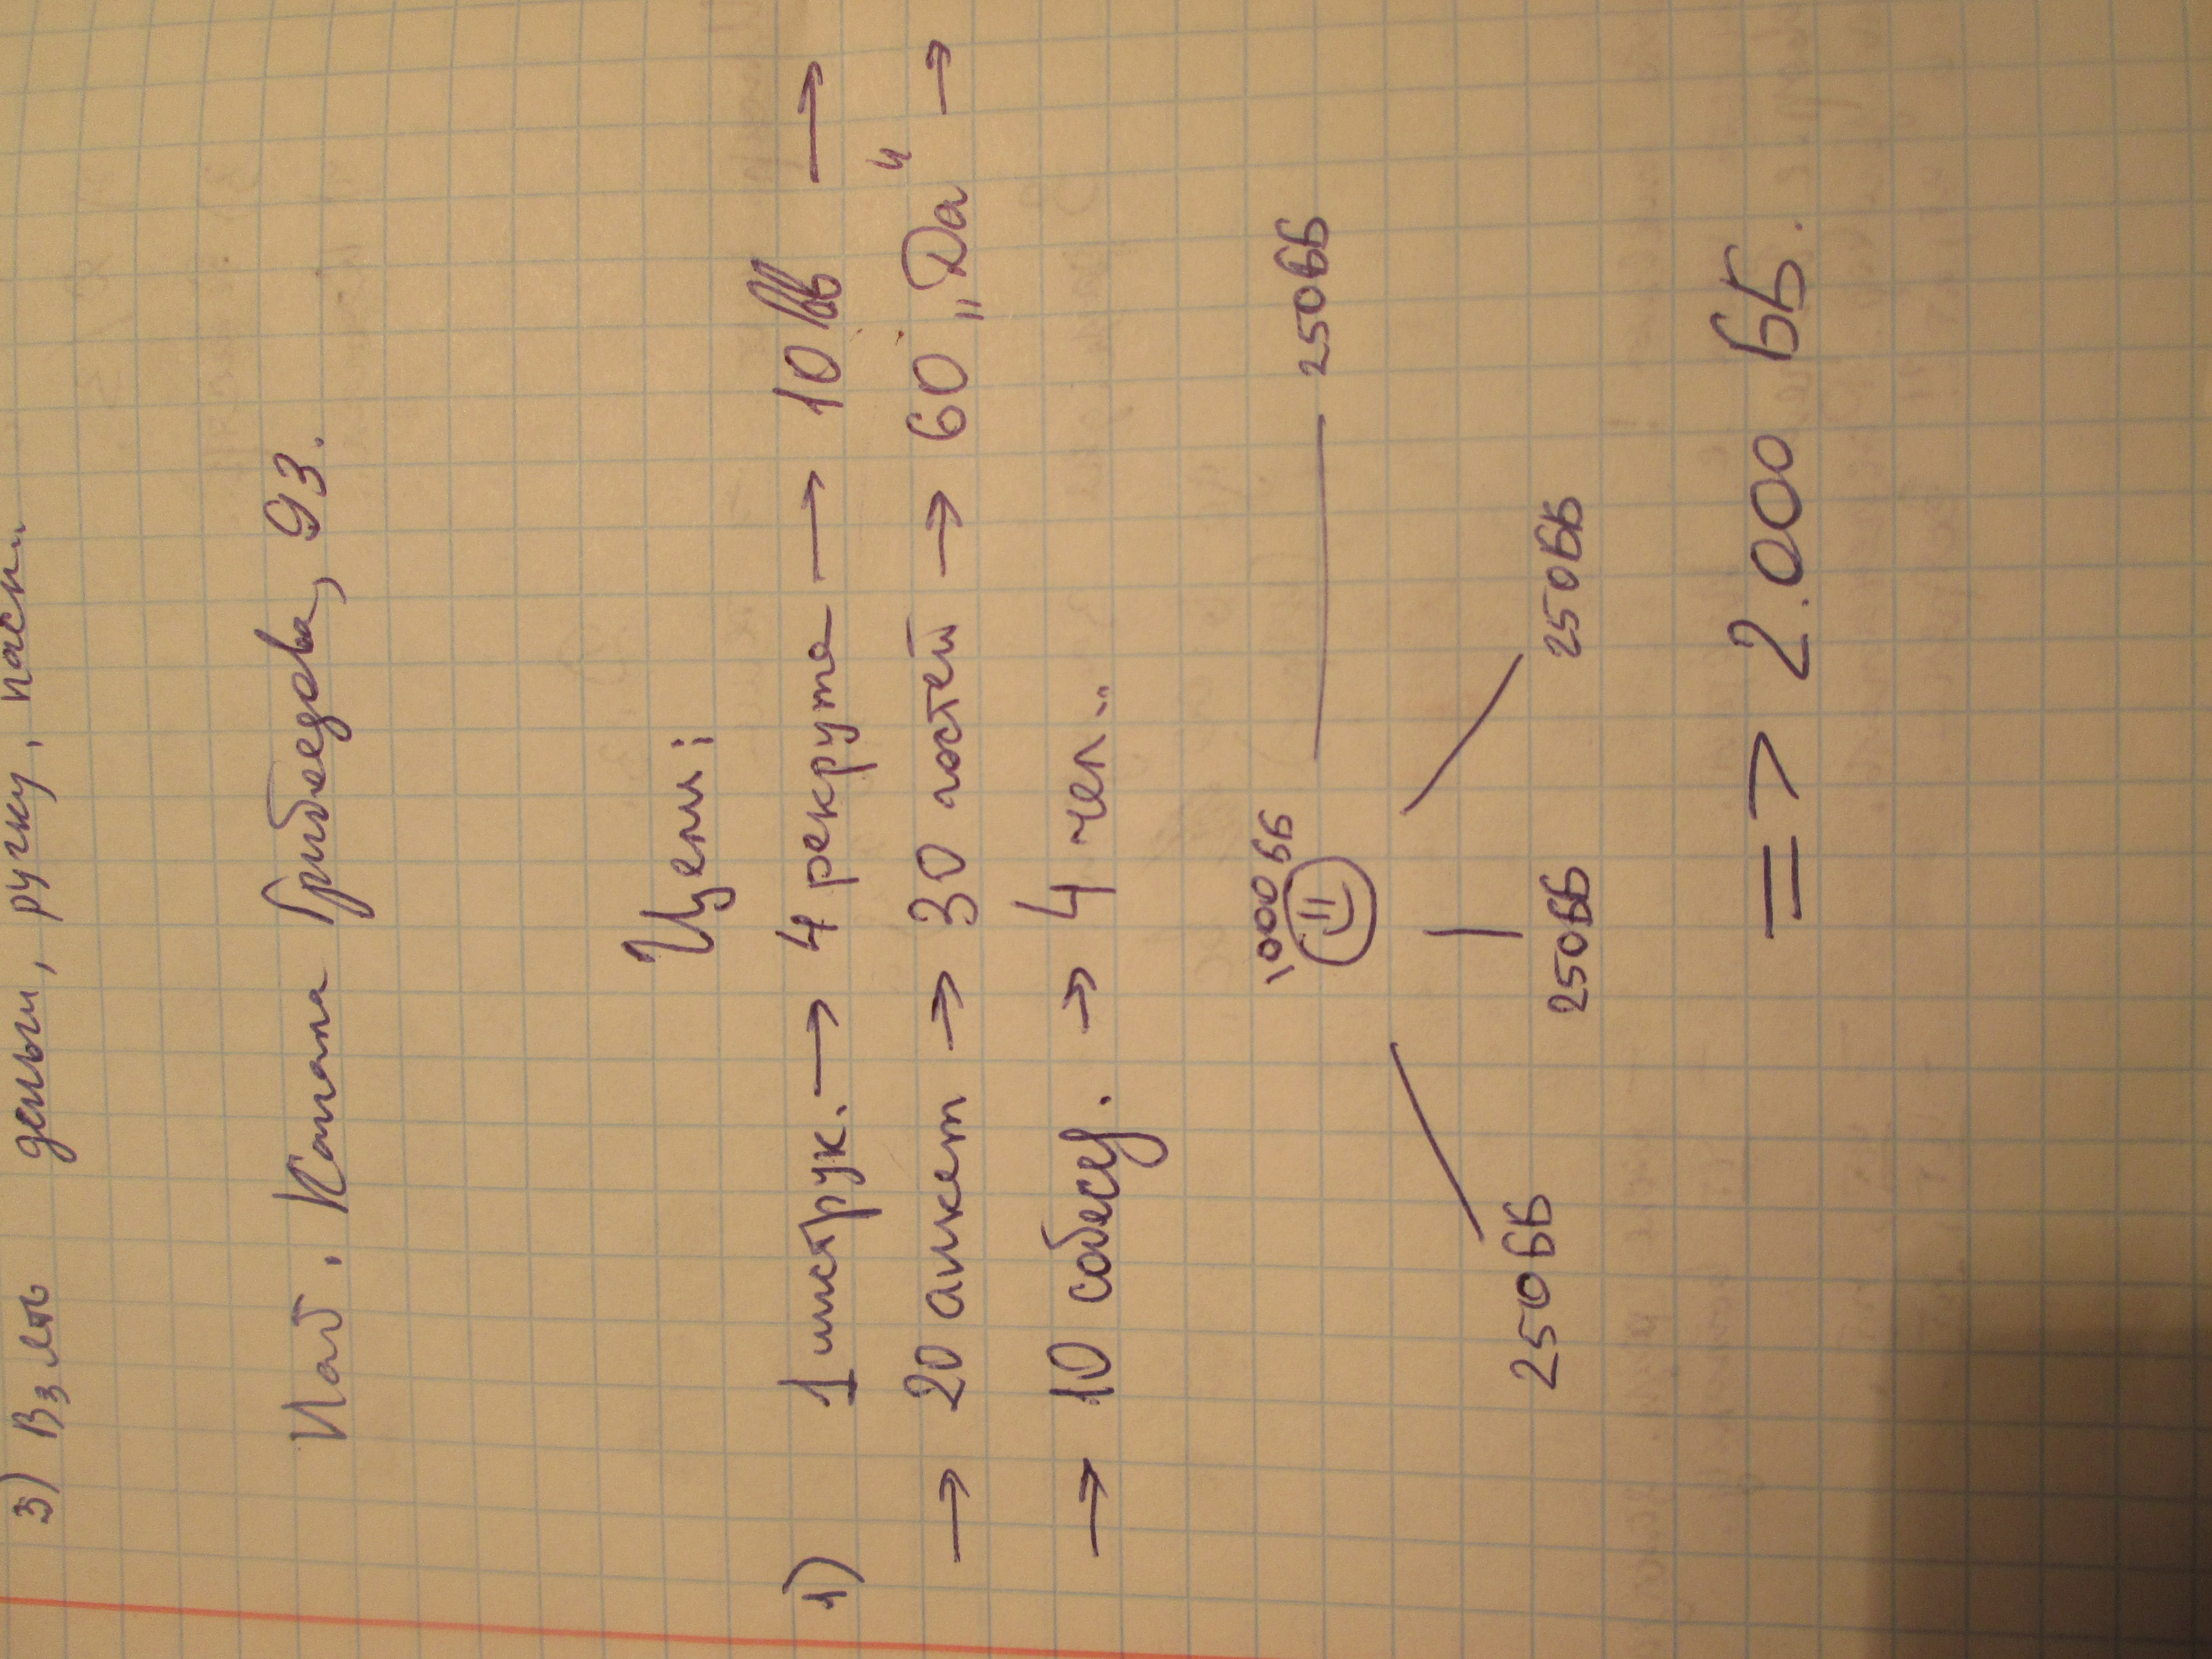 3) Взять деньги, ручку, пасп.
Наб. Канала Грибоедова, 93.
Цели:
1) 1 инструк. → 4 рекрута → 10 вв →
→ 20 анкет → 30 гостей → 60 „Да" →
→ 10 собесед. → 4 чел..
1000 ББ
250ББ
250ББ 250ББ 250ББ
=> 2.000 ББ.